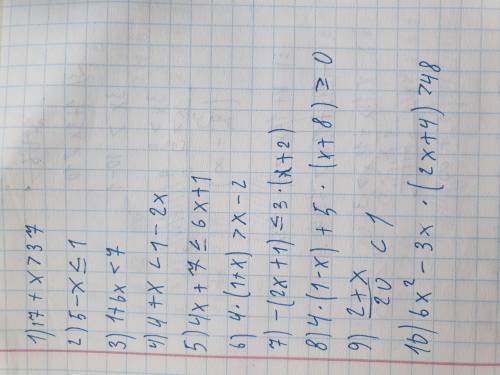 1) 17 + x > 37
2) 5 - x ≤ 1
3) 1 + 6x < 7
4) 4 + x < 1 - 2x
5) 4x + 7 ≤ 6x + 1
6) 4 · (1 + x) > x - 2
7) -(2x + 1) ≤ 3 · (x + 2)
8) 4 · (1 - x) + 5 · (x + 8) ≥ 0
9) (2 + x)/20 < 1
10) 6x² - 3x · (2x + 4) > 48